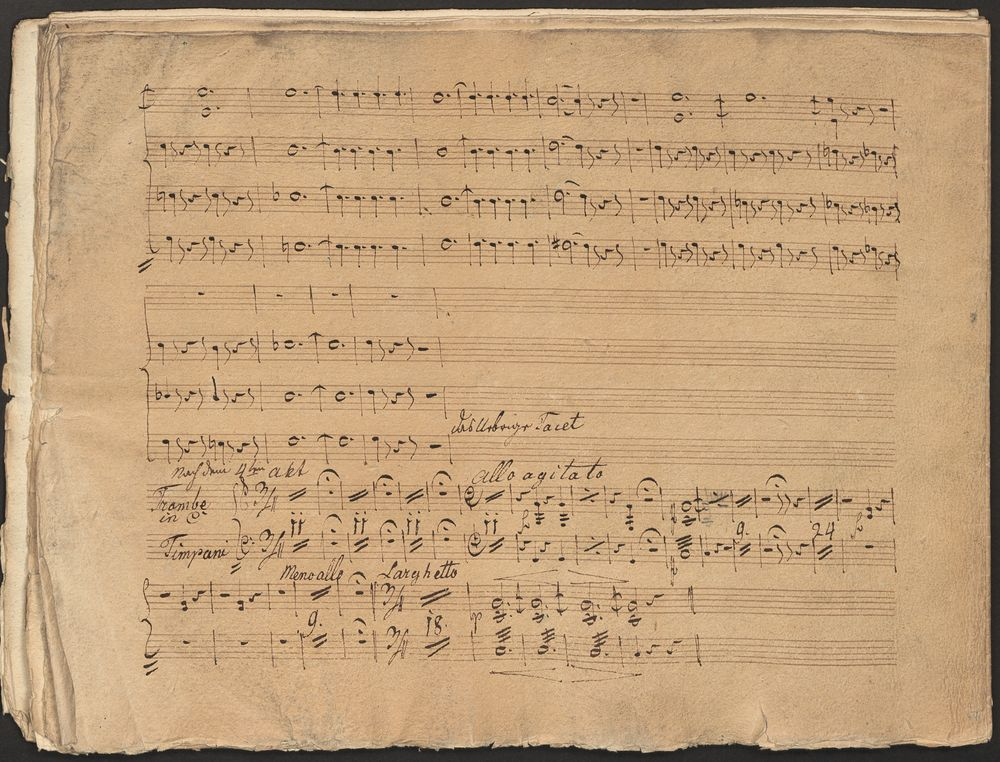 das Uebrige Tacet
Nach dem 4ten Akt
Allo agitato
Trombe
in C.
Timpani
9.
24
Meno allo
Larghetto
9.
18
p